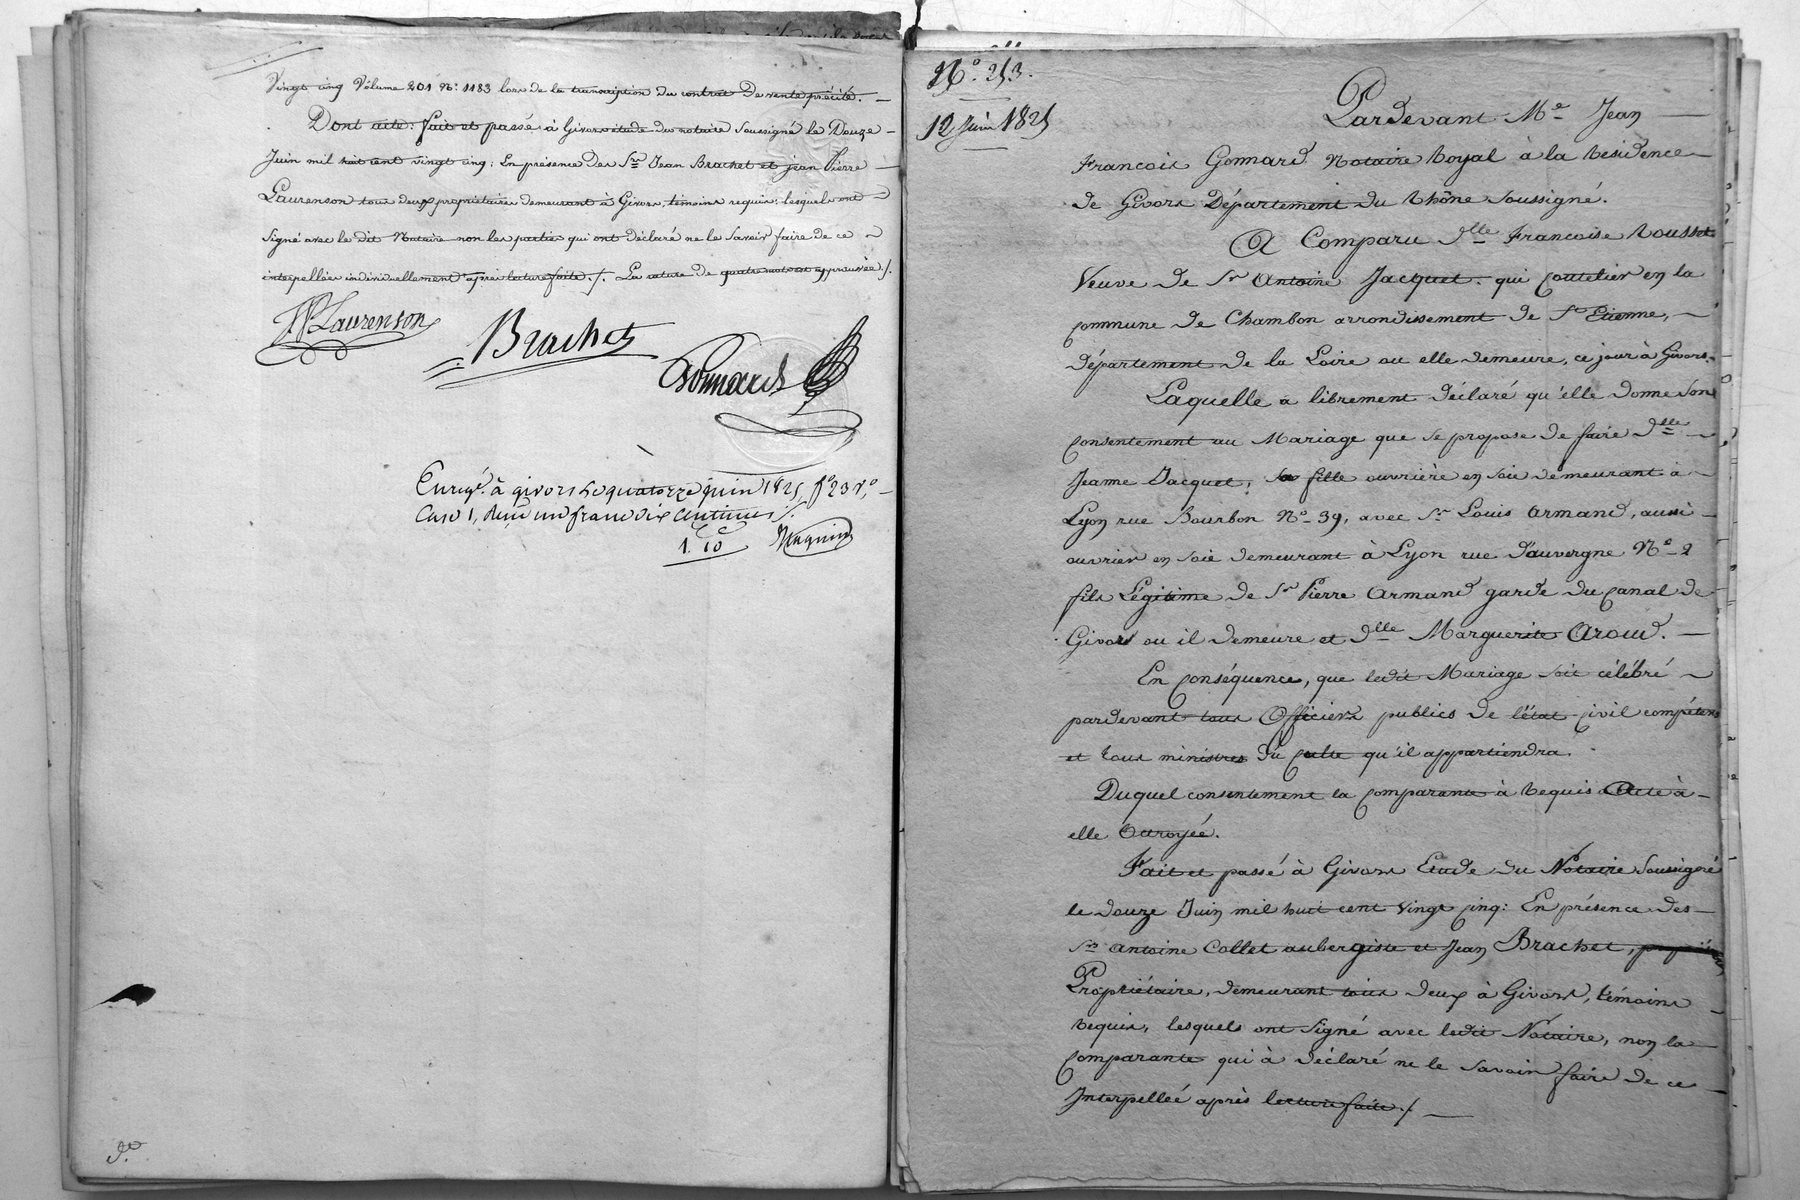 Vingt cinq Volume 201 N°. 1183 lors de la transcription du contrat de vente précité. —
Dont acte: fait et passé à Givors étude du notaire soussigné le Douze —
Juin mil huit cent vingt cinq: En présence des Srs Jean Brachet et jean Pierre —
Laurenson tous deux propriétaires demeurant à Givors, témoins requis; lesquels ont —
signé avec le dit Notaire non les parties qui ont déclaré ne le savoir faire de ce —
interpellées individuellement après lecture faite ./. La rature de quatre mots est approuvée ./.
JP Laurenson
Brachet
Gonnard
Enregé. à givors le quatorze juin 1825, f° 23 v°, —
Case 1, Reçu un franc dix centimes ./.
1. 10 Magnin
N°. 253.
12 Juin 1825
Pardevant Me Jean —
Francois Gonnard Notaire Royal à la Residence —
de Givors Département du Rhône soussigné.
A Comparu dlle Francoise Rousset
Veuve de Sr Antoine Jacquet. qui Coutelier en la
commune de Chambon arrondissement de St Etienne, —
département de la Loire ou elle demeure, ce jour à Givors.
Laquelle a librement déclaré qu'elle donne son
consentement au Mariage que se propose de faire dlle —
Jeanne Jacquet, sa fille ouvrière en soie demeurant à —
Lyon rue Bourbon N° 39, avec Sr Louis Armand, aussi —
ouvrier en soie demeurant à Lyon rue d'auvergne N° 2
fils Légitime de Sr Pierre Armand garde du Canal de
Givors ou il demeure et dlle Marguerite Aroud. —
En Conséquence, que ledit Mariage soit célébré —
pardevant tous Officiers publics de l'état civil compétens
et tous ministres du Culte qu'il appartiendra.
Duquel consentement la Comparante à Requis Acte à —
elle Octroyée.
Fait et passé à Givors Etude du Notaire soussigné
le douze Juin mil huit cent vingt cinq: En présence des —
Srs antoine Collet aubergiste et Jean Brachet,
Propriétaire, demeurant tous deux à Givors, témoins —
Requis, lesquels ont signé avec ledit Notaire, non la —
Comparante qui à déclaré ne le savoir faire de ce —
Interpellée après lecture faite ./. —